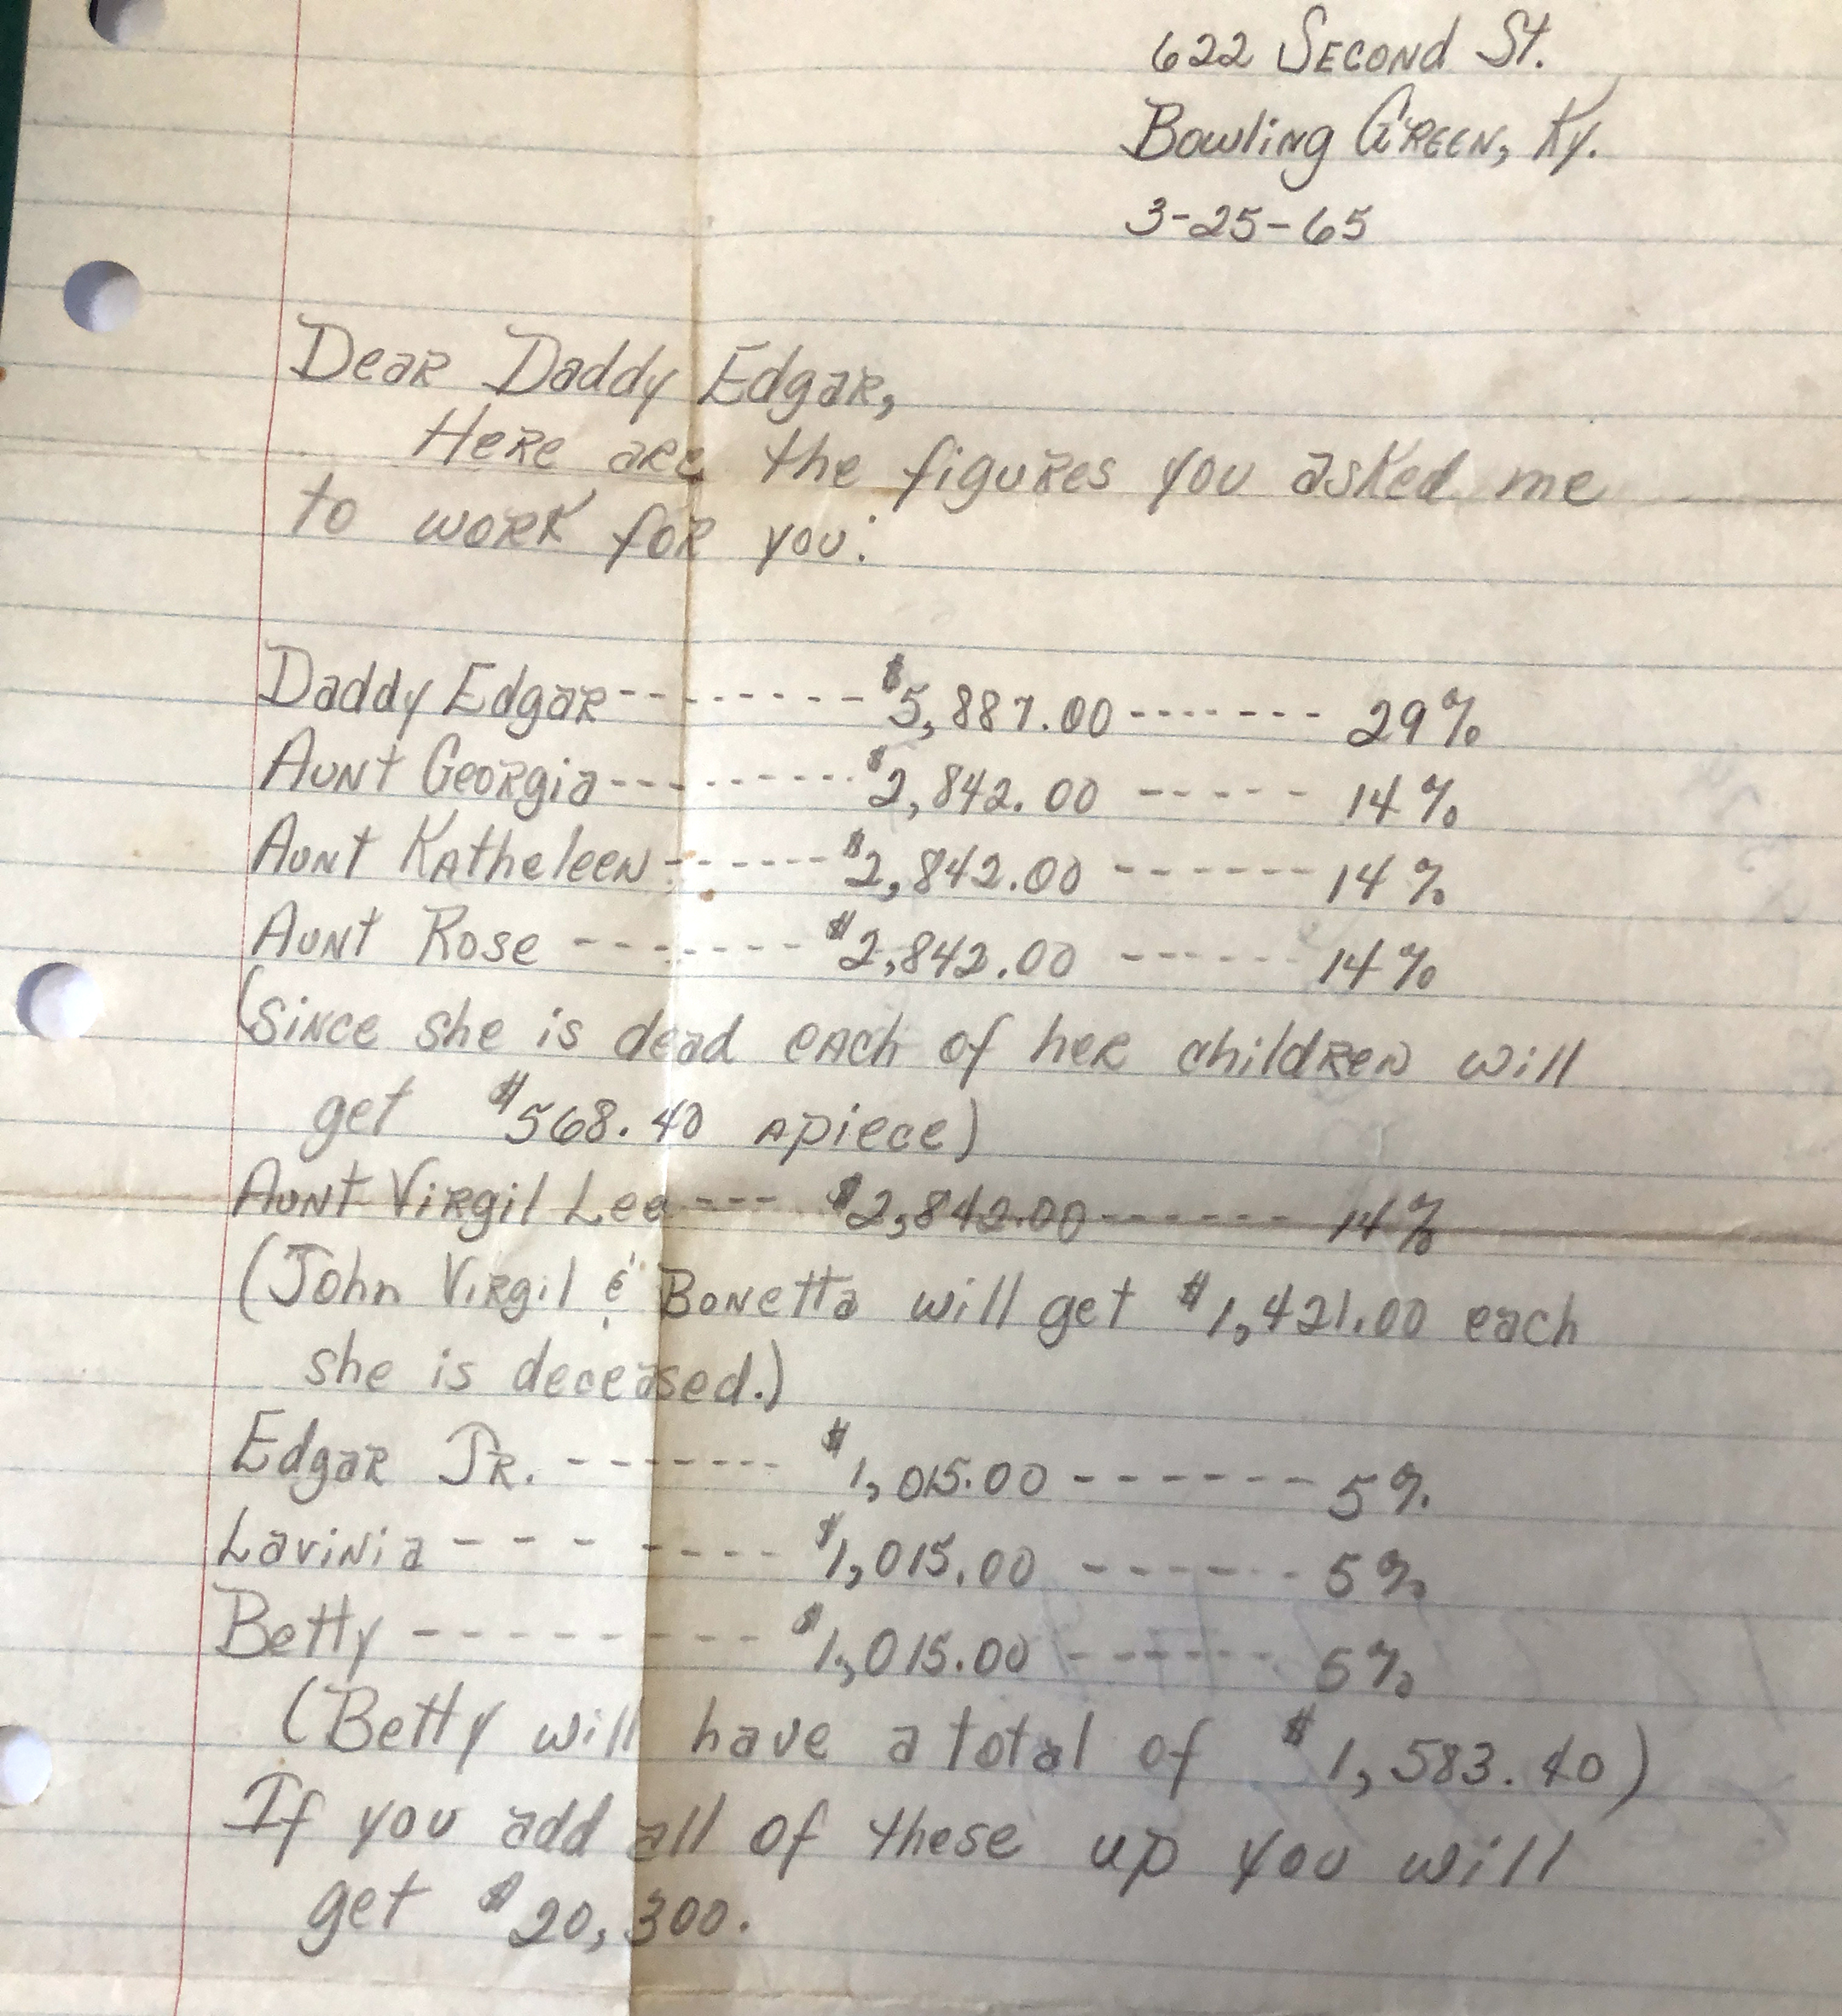 622 Second St.
Bowling Green, Ky.
3-25-65
Dear Daddy Edgar,
Here are the figures you asked me
to work for you:
Daddy Edgar--------- $5,887.00------- 29%
Aunt Georgia--------- $2,842.00 ----- 14%
Aunt Katheleen------- $2,842.00 ------- 14%
Aunt Rose ------- $2,842.00 ------ 14%
(since she is dead each of her children will
get $568.40 apiece)
Aunt Virgil Lee--- $2,842.00------ 14%
(John Virgil & Bonetta will get $1,421.00 each
she is deceased.)
Edgar Jr. ------- $1,015.00 ------ 5%
Lavinia ------- $1,015.00 ------ 5%
Betty --------- $1,015.00 ------ 5%
(Betty will have a total of $1,583.40)
If you add all of these up you will
get $20,300.